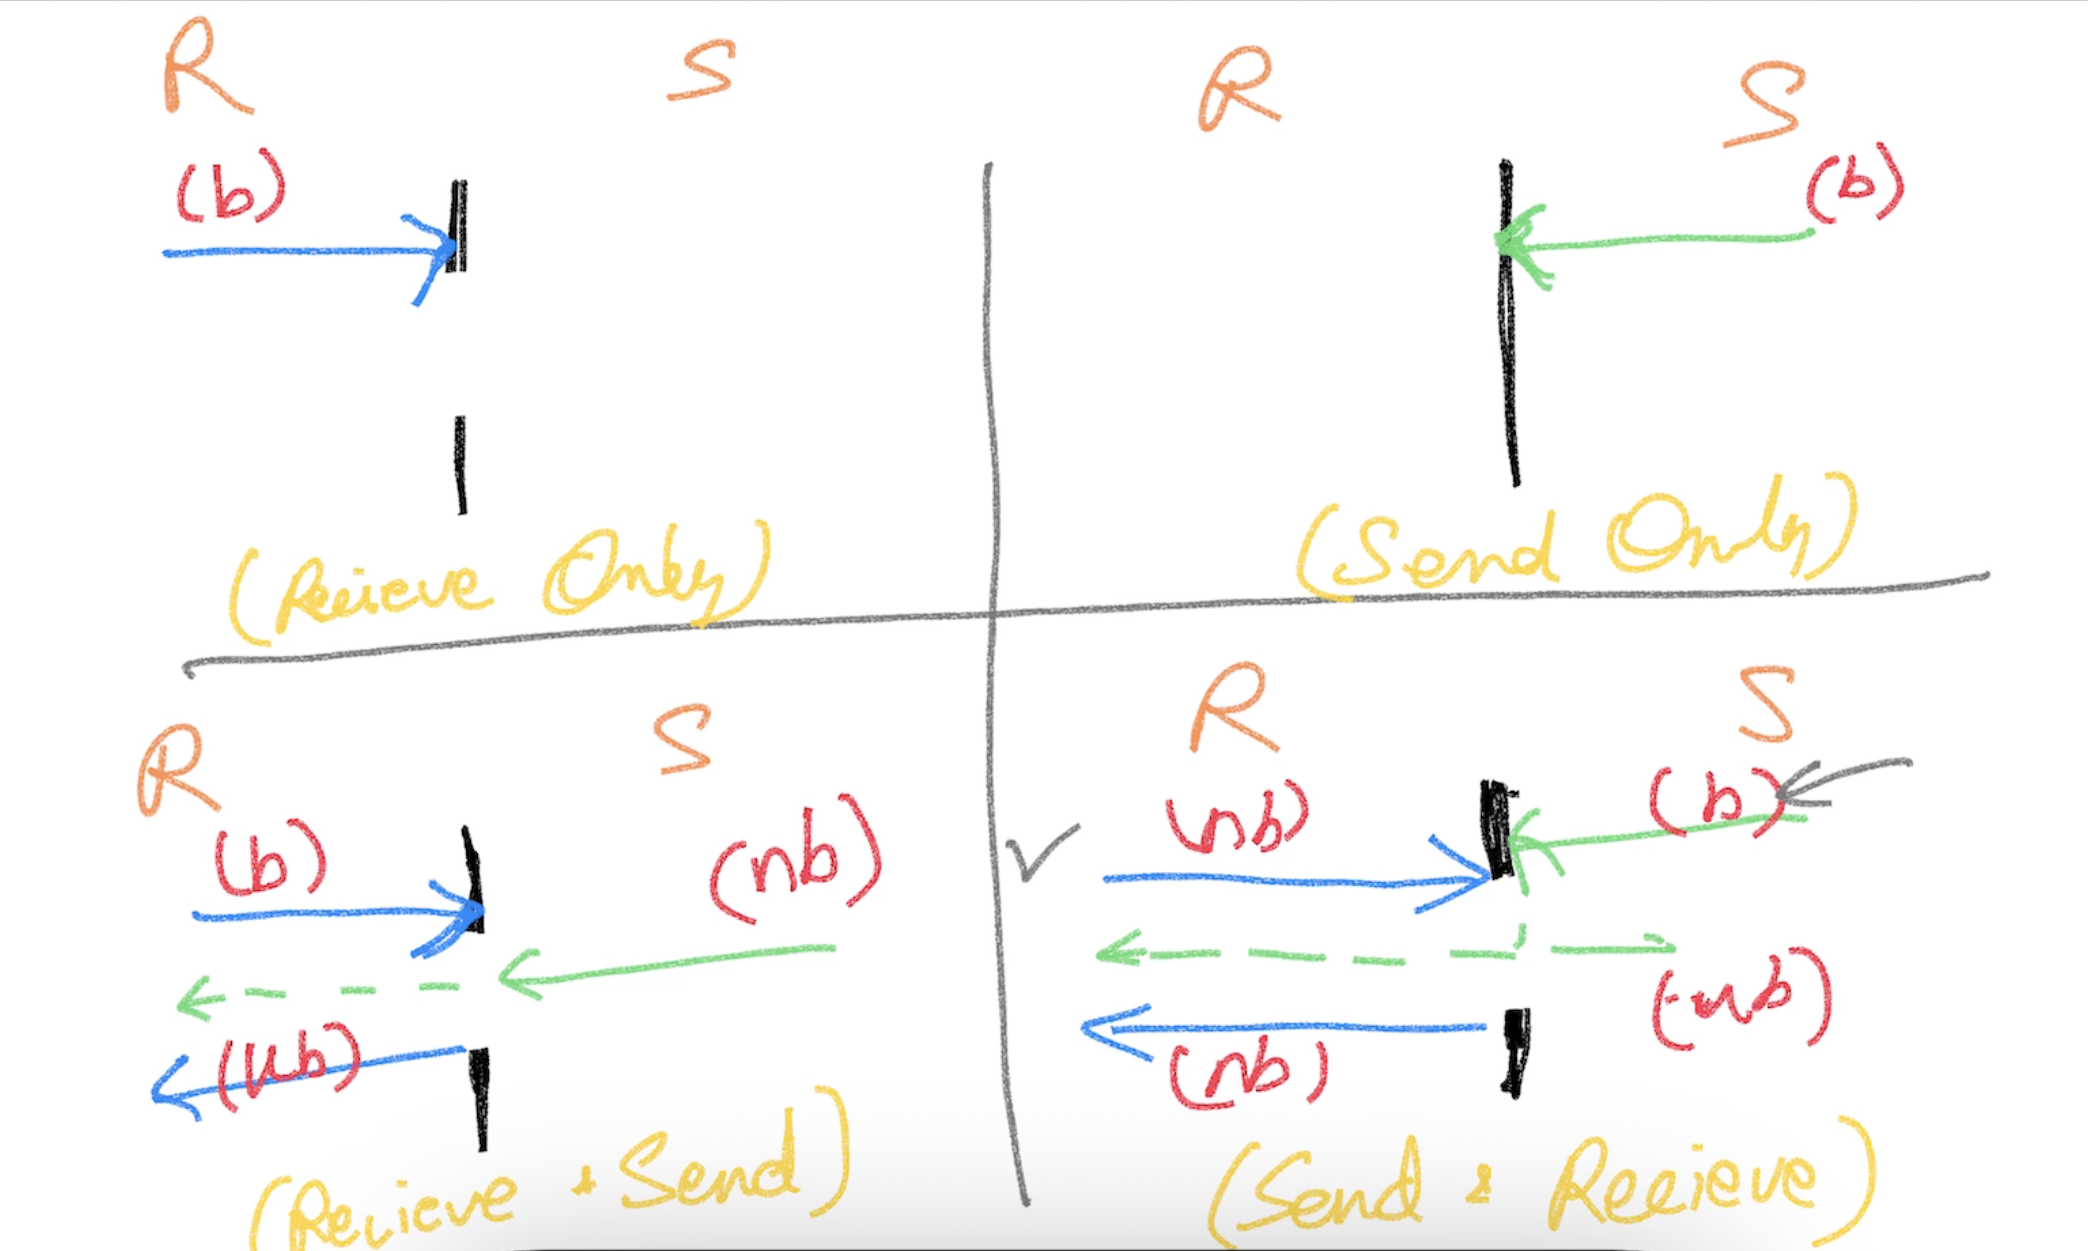 R S
(b)
(Recieve Only)
R S
(b)
(Send Only)
R S
(b) (nb)
(nb)
(Recieve + Send)
R S
(nb) (b)
(nb)
(nb)
(Send & Recieve)